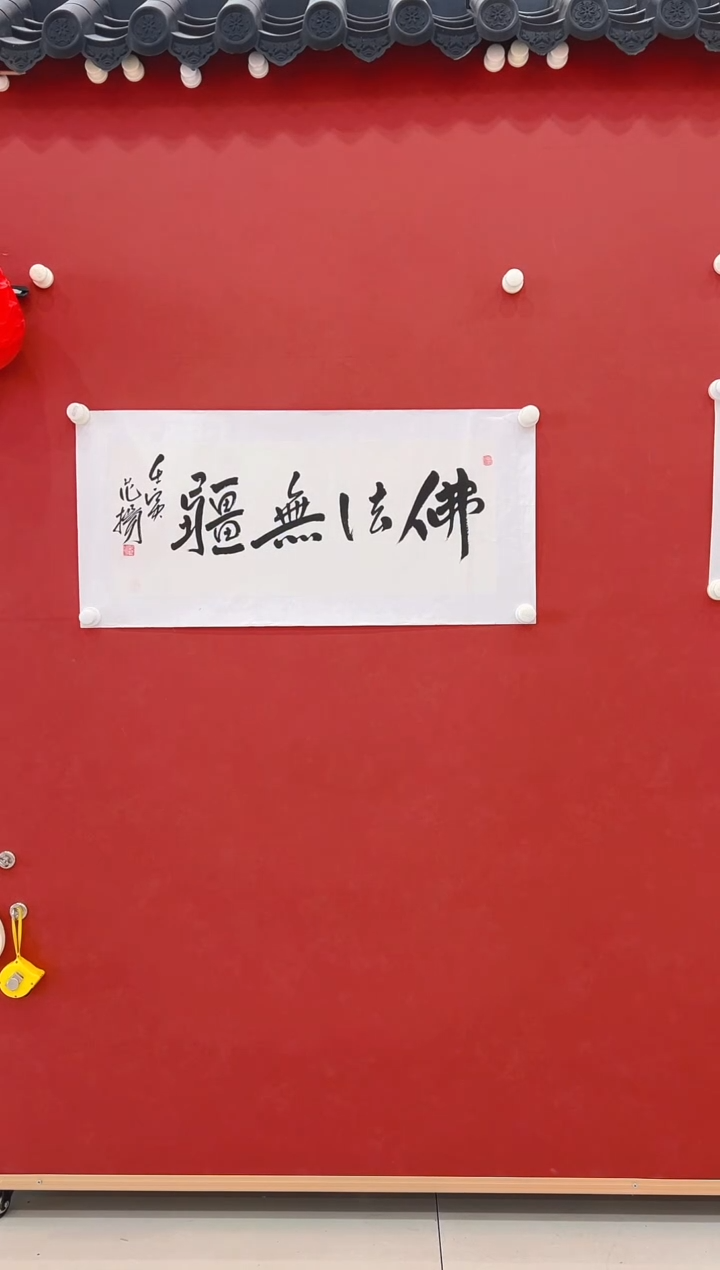 佛法無疆
壬寅
范揚